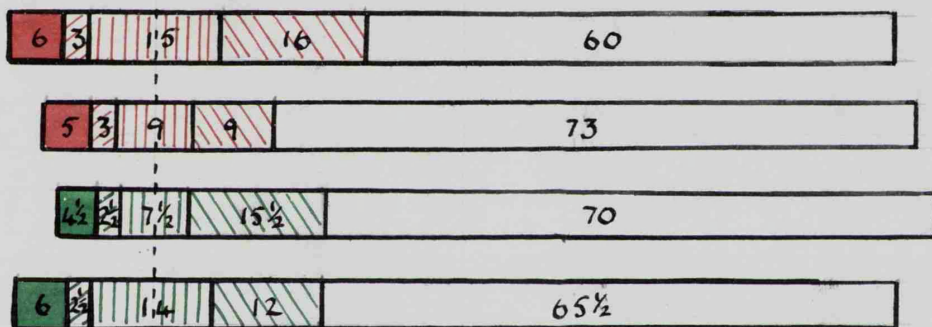 6 3 15 16 60
5 3 9 9 73
4½ 2½ 7½ 15½ 70
6 2½ 14 12 65½